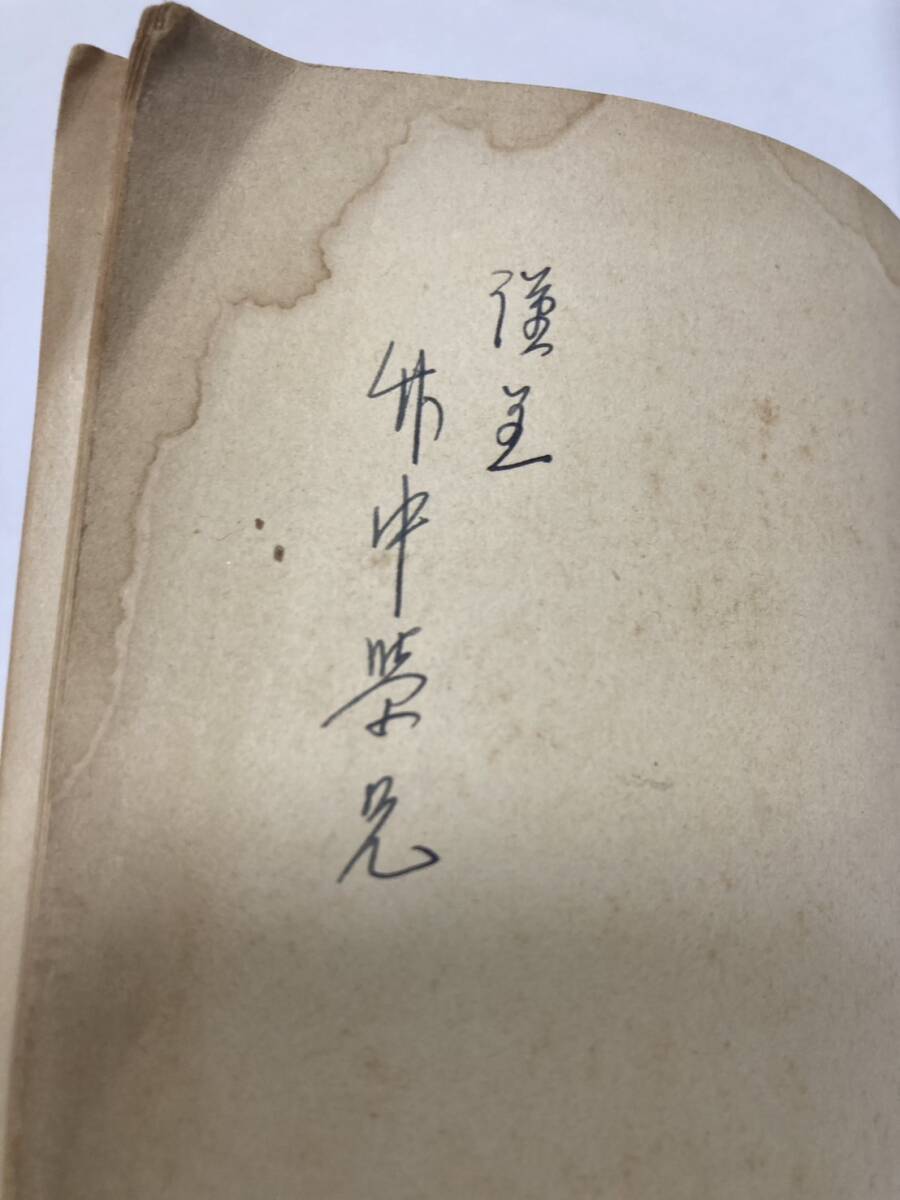 謹呈
竹中栄兄